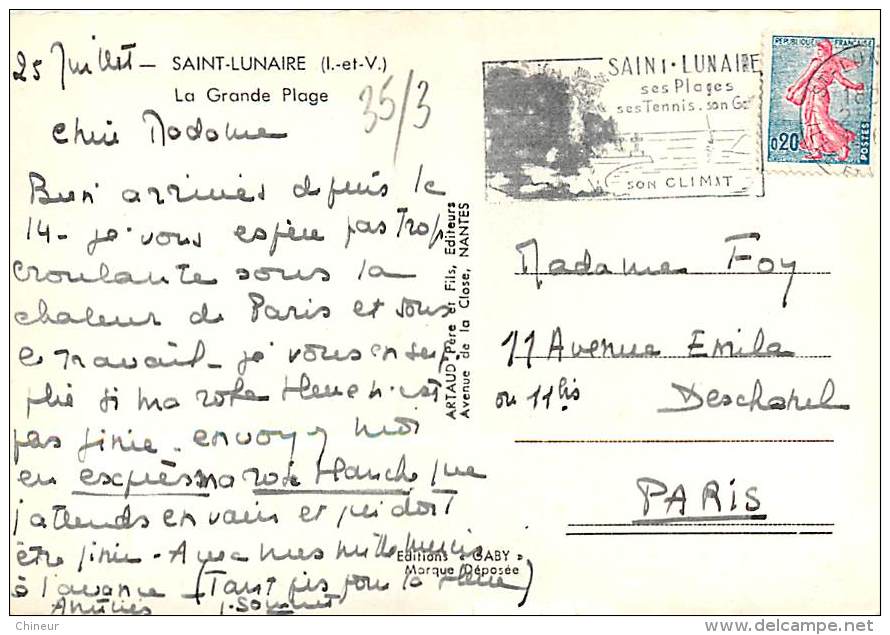 25 Juillet -
SAINT-LUNAIRE (I.-et-V.)
La Grande Plage
35/3
chère Madame
Bien arrivés depuis le
14 - je vous espère pas trop
croulante sous la
chaleur de Paris et sous
le travail - je vous en sup
plie si ma robe bleue n'est
pas finie - envoyez moi
en express ma robe blanche que
j'attends en vain et qui doit
être finie - Avec mes mille mercis
à l'avance (Tant pis pour la bleue)
Amitiés
ARTAUD Père et Fils, Editeurs
Avenue de la Close, NANTES
Editions « GABY »
Marque Déposée
SAINT-LUNAIRE
ses Plages
ses Tennis, son Go
SON CLIMAT
REPUBLIQUE FRANÇAISE
0,20
POSTES
Madame Foy
11 Avenue Emile
ou 11 bis Deschanel
PARIS
Chineur
delcampe.net